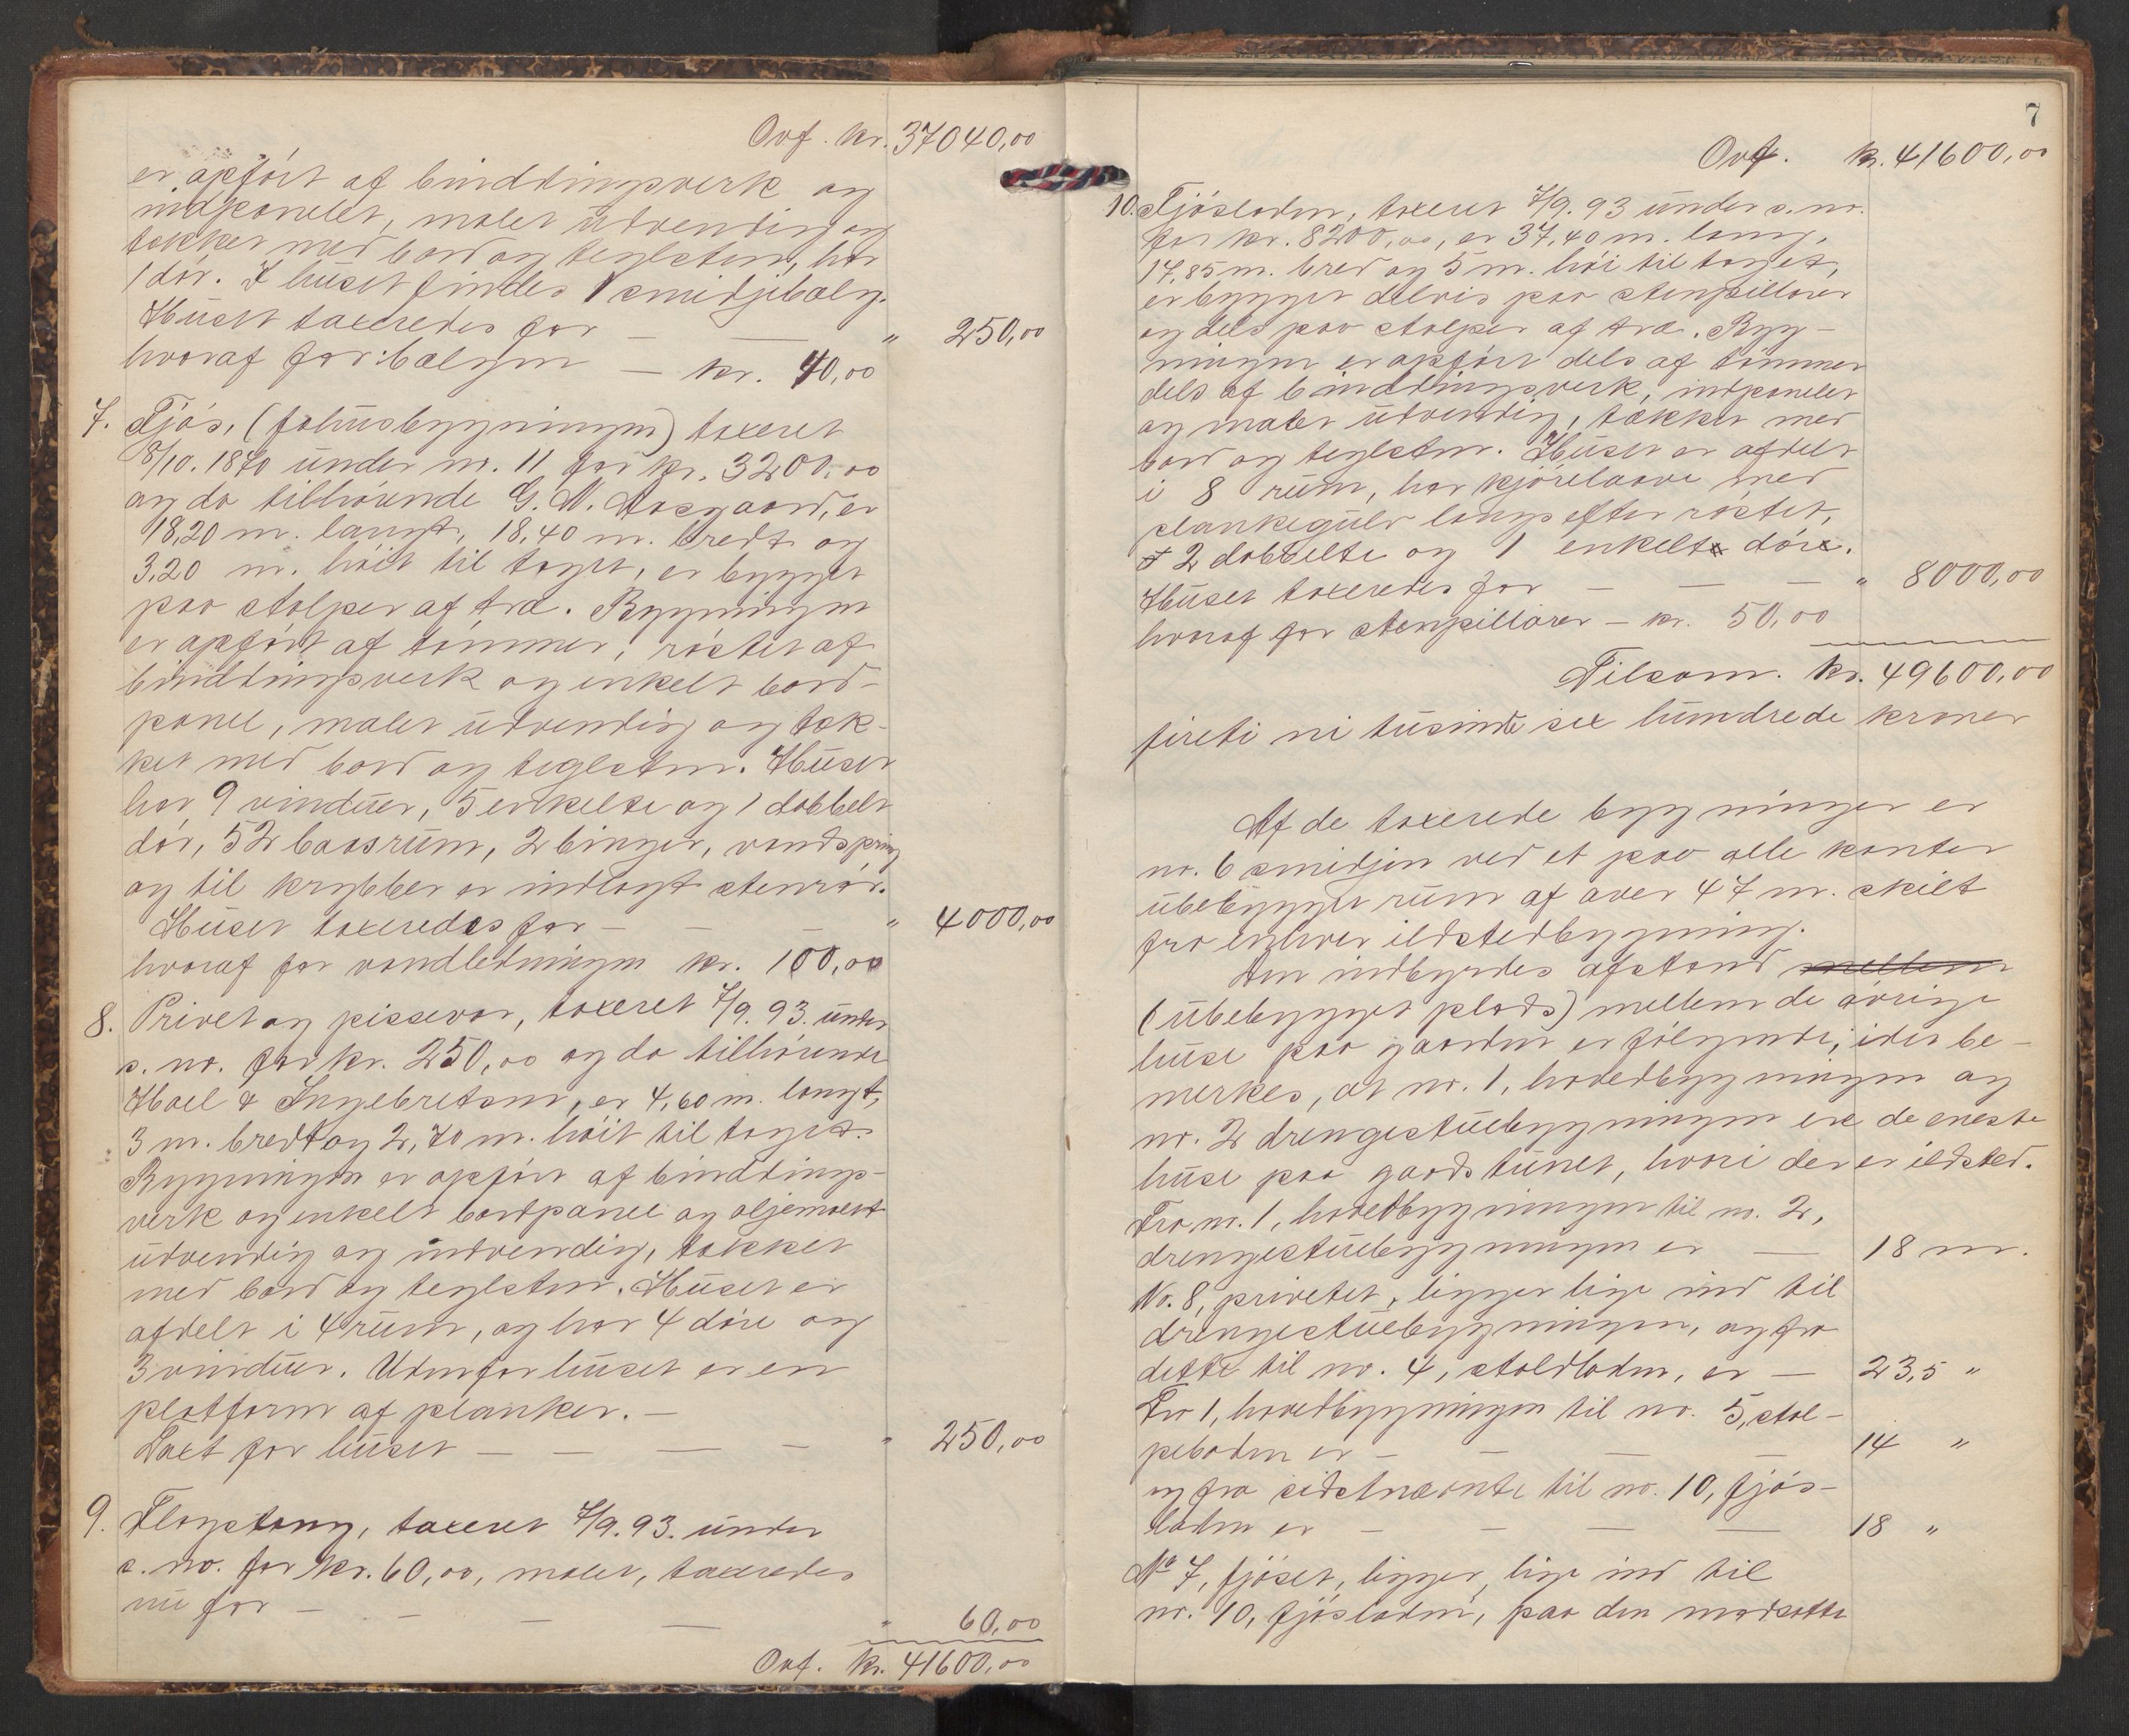 Ovf. kr. 37040,00
er opført af bindtingsverk og
indpanelet, malet udvendig og
tækket med bord og teglsten, har
1 dør. I huset findes 1 smidjebælg.
Huset taxeredes for — — " 250,00
hvoraf for bælgen — kr. 40,00
7. Fjøs, (fæhusbygningen) taxeret
8/10. 1870 under nr. 11 for kr. 3200,00
og da tilhørende G. N. Aasgaard, er
18,20 m. langt, 18,40 m. bredt og
3,20 m. høit til taget, er bygget
paa stolper af træ. Bygningen
er opført af tømmer, røstet af
bindtingsverk og enkelt bord-
panel, malet udvendig og tæk-
ket med bord og teglsten. Huset
har 9 vinduer, 5 enkelte og 1 dobbelt
dør, 52 baasrum, 2 binger, vandspring
og til krybber er indlagt stenrør.
Huset taxeredes for — — — " 4000,00
hvoraf for vandledningen kr. 100,00
8. Privet og pissevar, taxeret 7/9. 93. under
s. no. for kr. 250,00 og da tilhørende
Hoel & Ingebretsen, er 4,60 m. langt,
3 m. bredt og 2,70 m. høit til taget.
Bygningen er opført af bindtings-
verk og enkelt bordpanel og oljemalt
udvendig og indvendig, tækket
med bord og teglsten. Huset er
afdelt i 4 rum, og har 4 døre og
3 vinduer. Udenfor huset er en
platform af planker. —
Taxt for huset — — — — " 250,00
9. Flagstang, taxeret 7/9. 93. under
s. no. for kr. 60,00, malet, taxeredes
nu for — — — — " 60,00
Ovf. kr. 41600,00
7
Ovf. kr. 41600,00
10. Fjøsladen, taxeret 7/9. 93 under s. no.
for kr. 8200,00, er 37,40 m. lang,
17,85 m. bred og 5 m. høi til taget,
er bygget delvis paa stenpillarer
og dels paa stolper af træ. Byg-
ningen er opført dels af tømmer
dels af bindtingsverk, indpanelet
og malet udvendig, tækket med
bord og teglsten. Huset er afdelt
i 8 rum, har kjørelaave med
plankegulv langs efter røstet,
2 dobbelte og 1 enkelt dør.
Huset taxeredes for — — — " 8000,00
hvoraf for stenpillarer — kr. 50,00
Tilsam. kr. 49600,00
fireti ni tusinde sex hundrede kroner
Af de taxerede bygninger er
nr. 6 smidjen ved et paa alle kanter
ubebygget rum af over 47 m. skilt
fra enhver ildstedbygning.
Den indbyrdes afstand mellem
(ubebygget plads) mellem de øvrige
huse paa gaarden er følgende, idet be-
merkes, at nr. 1, hovedbygningen og
nr. 2 drengestuebygningen ere de eneste
huse paa gaardstunet, hvori der er ildsted.
Fra nr. 1, hovedbygningen til nr. 2,
drengestuebygningen er — 18 m.
No. 8, privetet, ligger lige ind til
drengestuebygningen, og fra
dette til nr. 4, staldladen, er — 23,5 "
Fra 1, hovedbygningen til nr. 5, stol-
peboden er — — — — 14 "
og fra sidstnævnte til nr. 10, fjøs-
laden er — — — — 18 "
No 7, fjøset, ligger lige ind til
nr. 10, fjøsladen, paa den modsatte